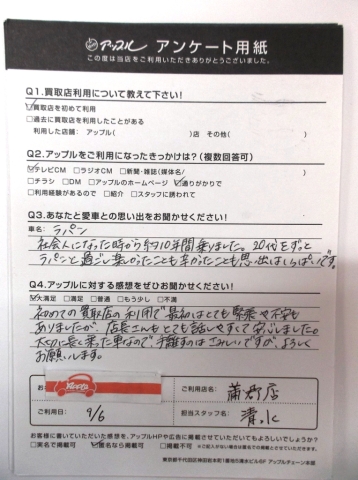 アップル アンケート用紙
この度は当店をご利用いただきありがとうございました。
Q1.買取店利用について教えて下さい!
☑買取店を初めて利用
□過去に買取店を利用したことがある
利用した店舗: アップル( )店 その他( )
Q2.アップルをご利用になったきっかけは?(複数回答可)
☑テレビCM □ラジオCM □新聞・雑誌(媒体名/ )
□チラシ □DM □アップルのホームページ ☑通りがかりで
□利用経験があるので □紹介 □スタッフに誘われて
Q3.あなたと愛車との思い出をお聞かせください!
車名: ラパン
社会人になった時から約10年間乗りました。20代をずっと
ラパンと過ごし楽しかったことも辛かったことも思い出はいっぱいです。
Q4.アップルに対する感想をぜひお聞かせください!
☑大満足 □満足 □普通 □もう少し □不満
初めての買取店の利用で最初はとても緊張や不安も
ありましたが、店長さんもとても話しやすくて安心しました。
大切に長く乗った車なので手離すのはさみしいですが、よろしく
お願いします。
お
Apple
ご利用店名: 蒲郡店
ご利用日: 9/6
担当スタッフ名: 清水
お客様に書いていただいた感想を、アップルHPや広告に掲載させていただいてもよろしいでしょうか?
□実名で掲載可 ☑匿名なら掲載可 □掲載不可
※ご記入がない場合は匿名での掲載とさせていただきます。
東京都千代田区神田佐久間町1番地の清水ビル6F アップルチェーン本部